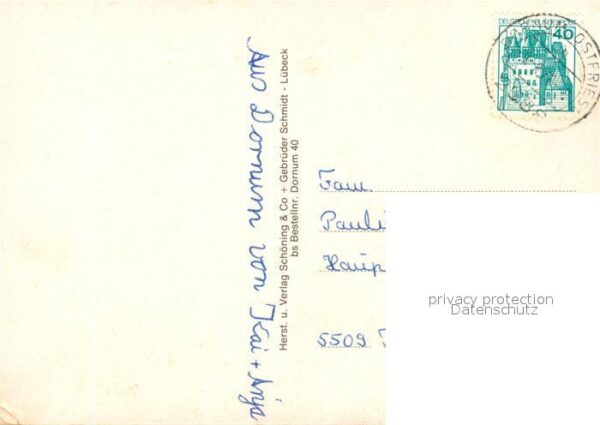 Aus Dornum von Kai + Anja
Herst. u. Verlag Schöning & Co + Gebrüder Schmidt - Lübeck
bs Bestellnr. Dornum 40
DEUTSCHE BUNDESPOST
40
OSTFRIESL
Fam.
Pauli
Haup
5509
privacy protection
Datenschutz